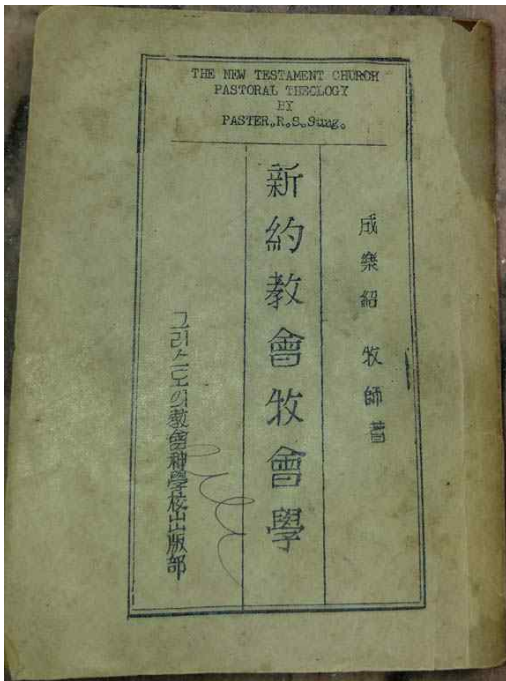 THE NEW TESTAMENT CHURCH
PASTORAL THEOLOGY
BY
PASTER.R.S.Sung.
成樂紹 牧師著
新約教會牧會學
그리스도의敎會神學校出版部